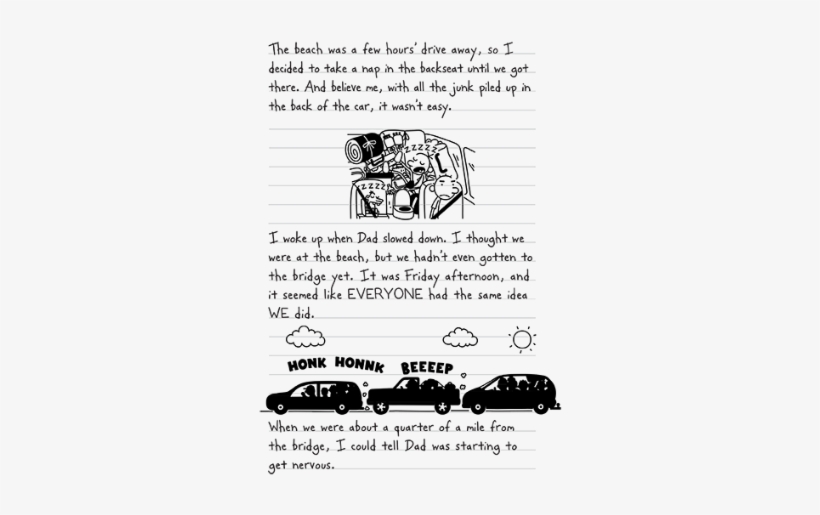 The beach was a few hours' drive away, so I
decided to take a nap in the backseat until we got
there. And believe me, with all the junk piled up in
the back of the car, it wasn't easy.
ZZZZZ
ZZZZ
I woke up when Dad slowed down. I thought we
were at the beach, but we hadn't even gotten to
the bridge yet. It was Friday afternoon, and
it seemed like EVERYONE had the same idea
WE did.
HONK HONNK BEEEEP
When we were about a quarter of a mile from
the bridge, I could tell Dad was starting to
get nervous.